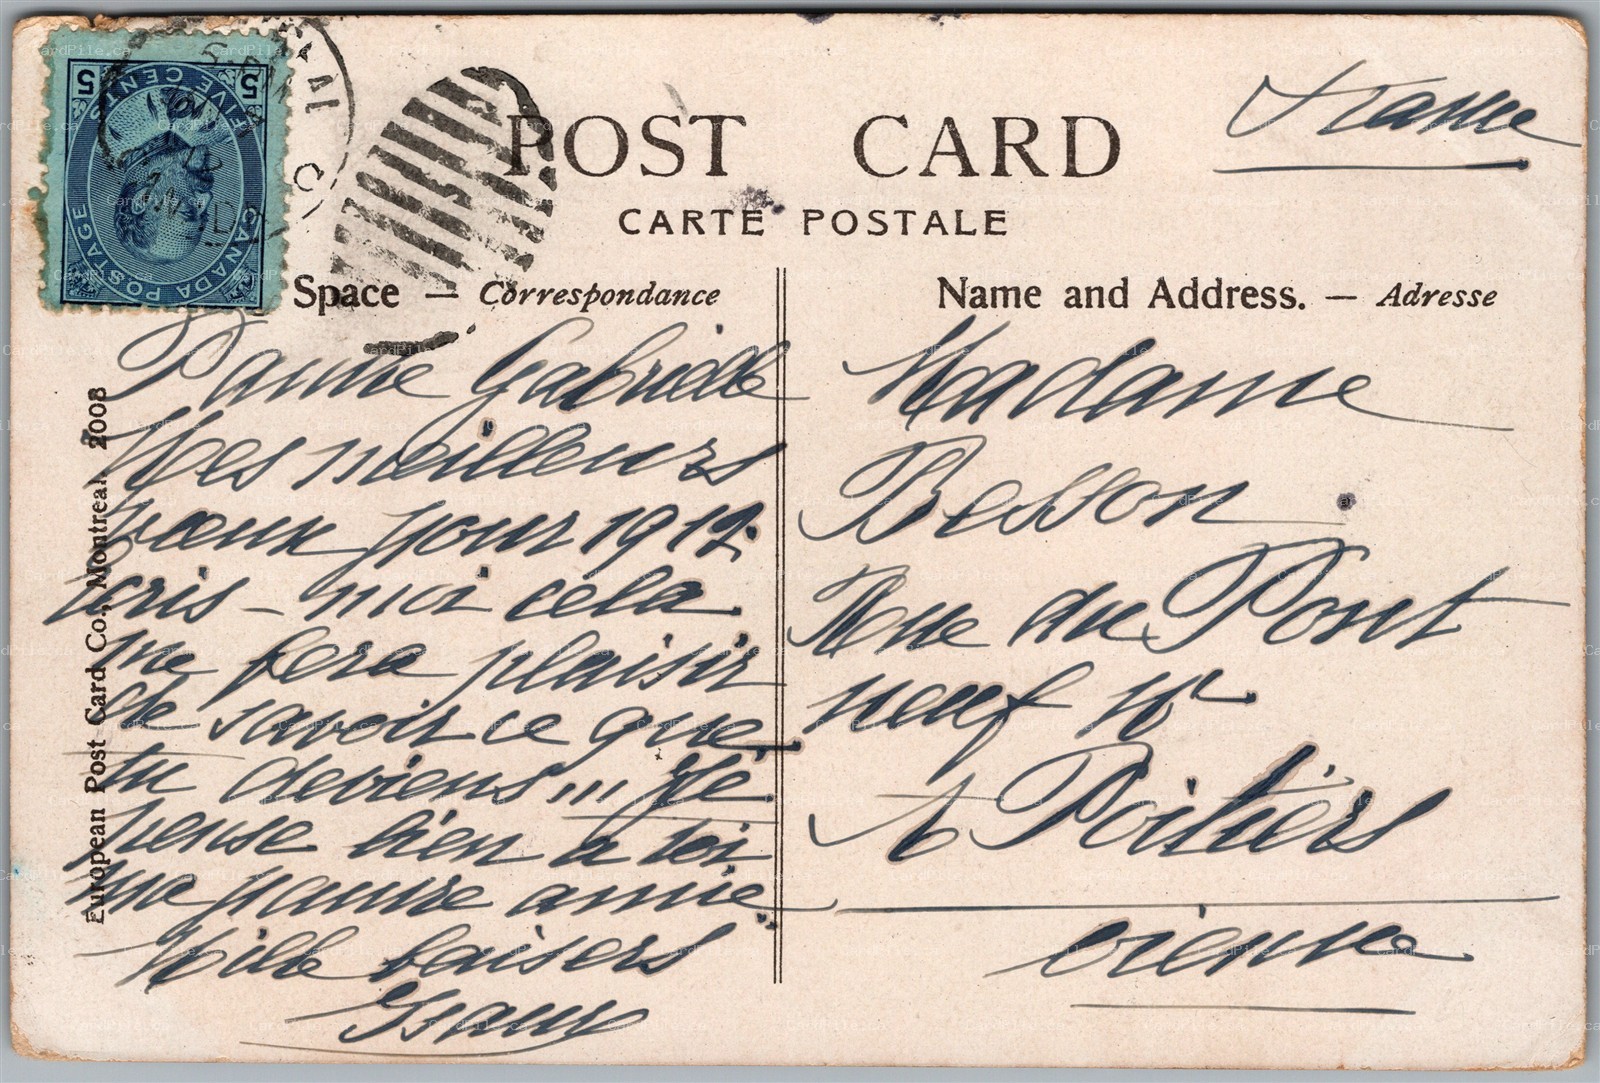 POST CARD
CARTE POSTALE
France
CANADA POSTAGE
FIVE CENTS
5 5
Space — Correspondance
Name and Address. — Adresse
Pauvre Gabrielle
Mes meilleurs
vœux pour 1912.
écris-moi cela
me fera plaisir
de savoir ce que
tu deviens... Je
pense bien à toi
ma pauvre amie
Mille baisers
Madame
Besson
Rue du Pont
neuf
à Poitiers
Vienne
European Post Card Co., Montreal. 2008
CardPile.ca